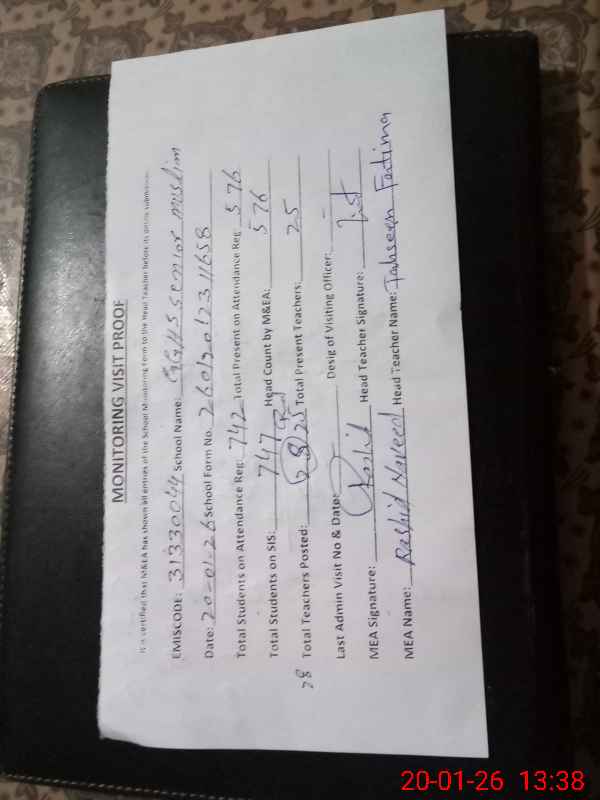 MONITORING VISIT PROOF
It is certified that M&EA has shown all entries of the School Monitoring Form to the Head Teacher before its online submission.
EMISCODE: 31330044 School Name: GGHSS senior muslim
Date: 20-01-26 School Form No. 260120123 11658
Total Students on Attendance Reg: 742 Total Present on Attendance Reg: 576
Total Students on SIS: 747 Head Count by M&EA: 576
28 Total Teachers Posted: 28 25 Total Present Teachers: 25
Last Admin Visit No & Date: Desig of Visiting Officer:
MEA Signature: Rashid Head Teacher Signature:
MEA Name: Rashid Naveed Head Teacher Name: Tahseen Fatima
20-01-26 13:38